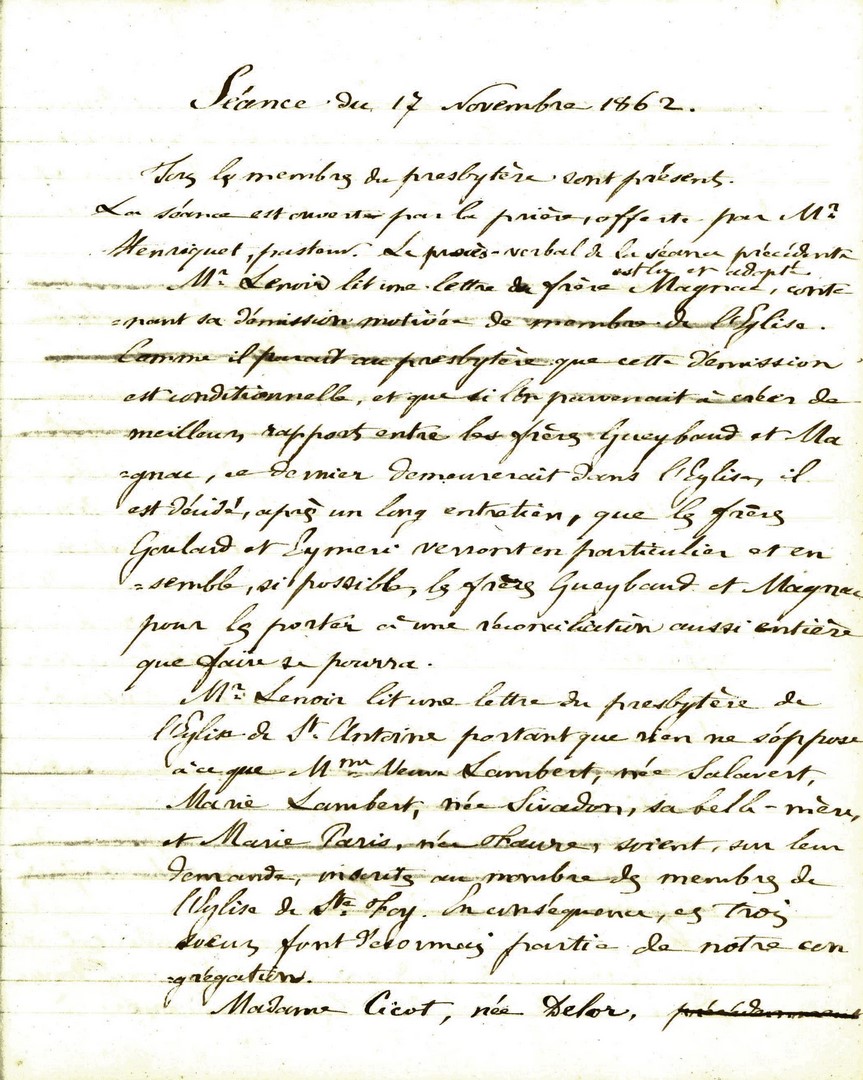 Séance du 17 Novembre 1862.
Tous les membres du presbytère sont présents.
La séance est ouverte par la prière, offerte par Mr
Henriquet, pasteur. Le procès-verbal de la séance précédente
est lu et adopté
Mr Lenoir lit une lettre du frère Magnac, conte
=nant sa démission motivée de membre de l'Eglise.
Comme il parait au presbytère que cette démission
est conditionnelle, et que si l'on parvenait à créer de
meilleurs rapports entre les frères Gueybaud et Ma
=gnac, ce dernier demeurerait dans l'Eglise, il
est décidé, après un long entretien, que les frères
Goulard et Eymeri verront en particulier et en
=semble, si possible, les frères Gueybaud et Magnac
pour les porter à une réconciliation aussi entière
que faire se pourra.
Mr Lenoir lit une lettre du presbytère de
l'Eglise de St Antoine portant que rien ne s'oppose
à ce que Mme Veuve Lambert, née Salavert,
Marie Lambert, née Sivadon, sa belle-mère,
et Marie Paris, née Faure, soient, sur leur
demande, inscrites au nombre des membres de
l'Eglise de Ste Foy. En conséquence, ces trois
soeurs font désormais partie de notre con
=grégation.
Madame Cicot, née Delor, précédemment